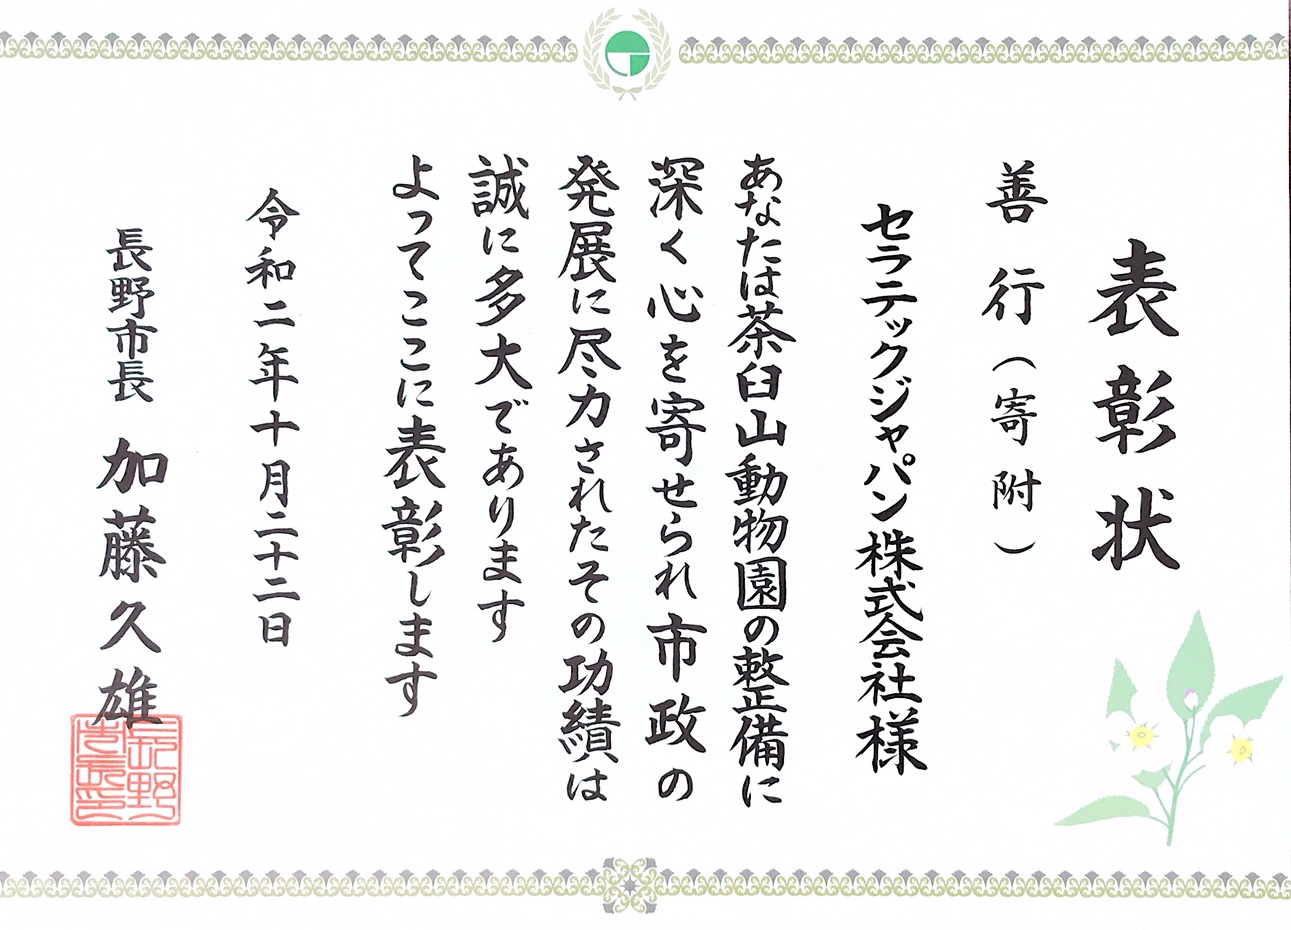 表彰状
善行（寄附）
セラテックジャパン株式会社様
あなたは茶臼山動物園の整備に
深く心を寄せられ市政の
発展に尽力されたその功績は
誠に多大であります
よってここに表彰します
令和二年十月二十二日
長野市長 加藤久雄
長野
市長印